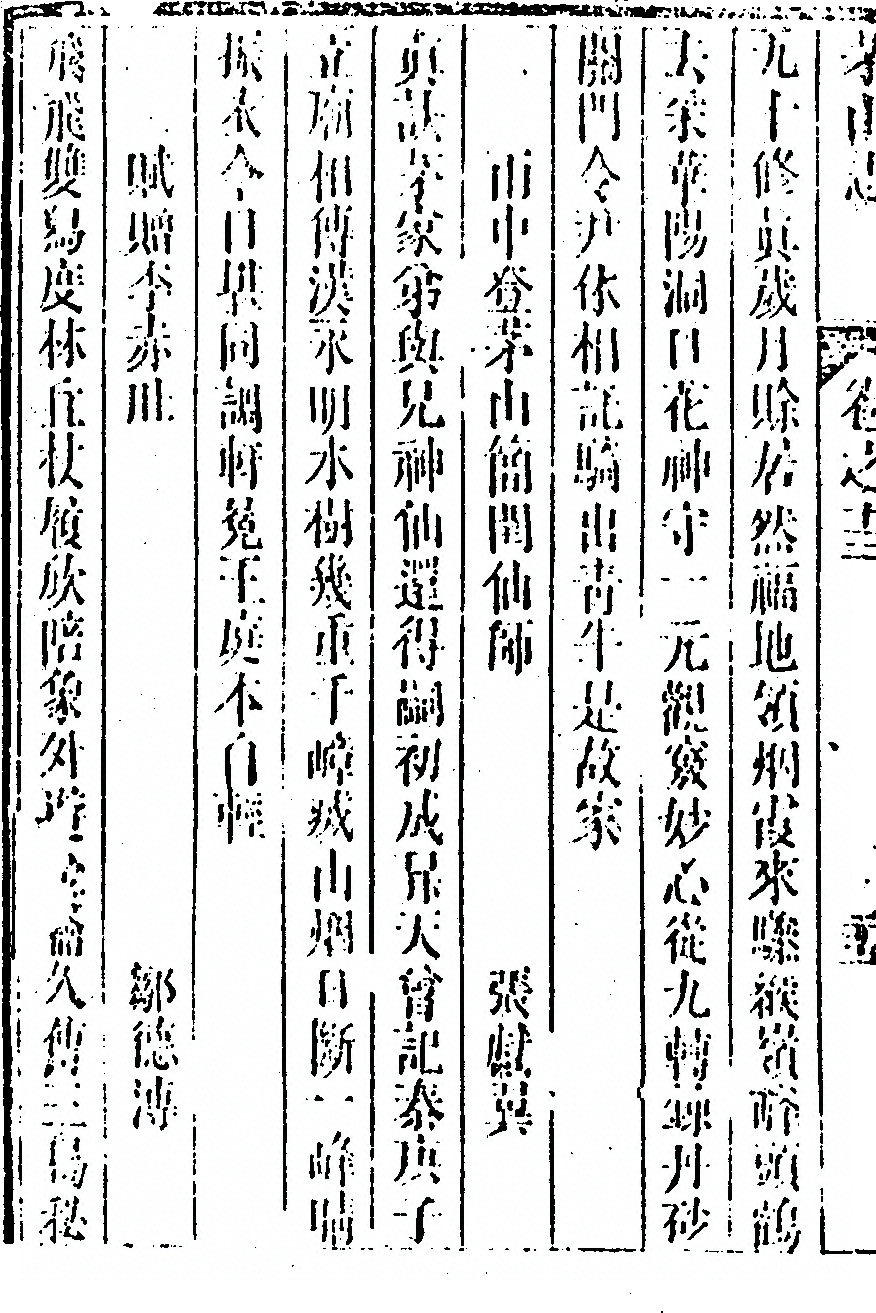 茅山志 後之 
九十修真歲月賒居然福地領烟霞來驂緱嶺醉頭鶴
去釆華陽洞口花神守一元觀竅妙心從九轉鍊丹砂
關門令尹休相託騎出青牛是故家
山中登茅山簡閻仙師 張獻翼
真誥李家弟與兄神仙還得嗣初成昇天曾記泰庚子
立廟相傳漢永明水樹幾重千嶂械山烟日斷一峰
振衣今日堪同調軒冕王庭不自輕
賦贈李赤川 鄒德溥
飛飛雙舄度林丘杖履欣陪象外遊 久傳三島秘